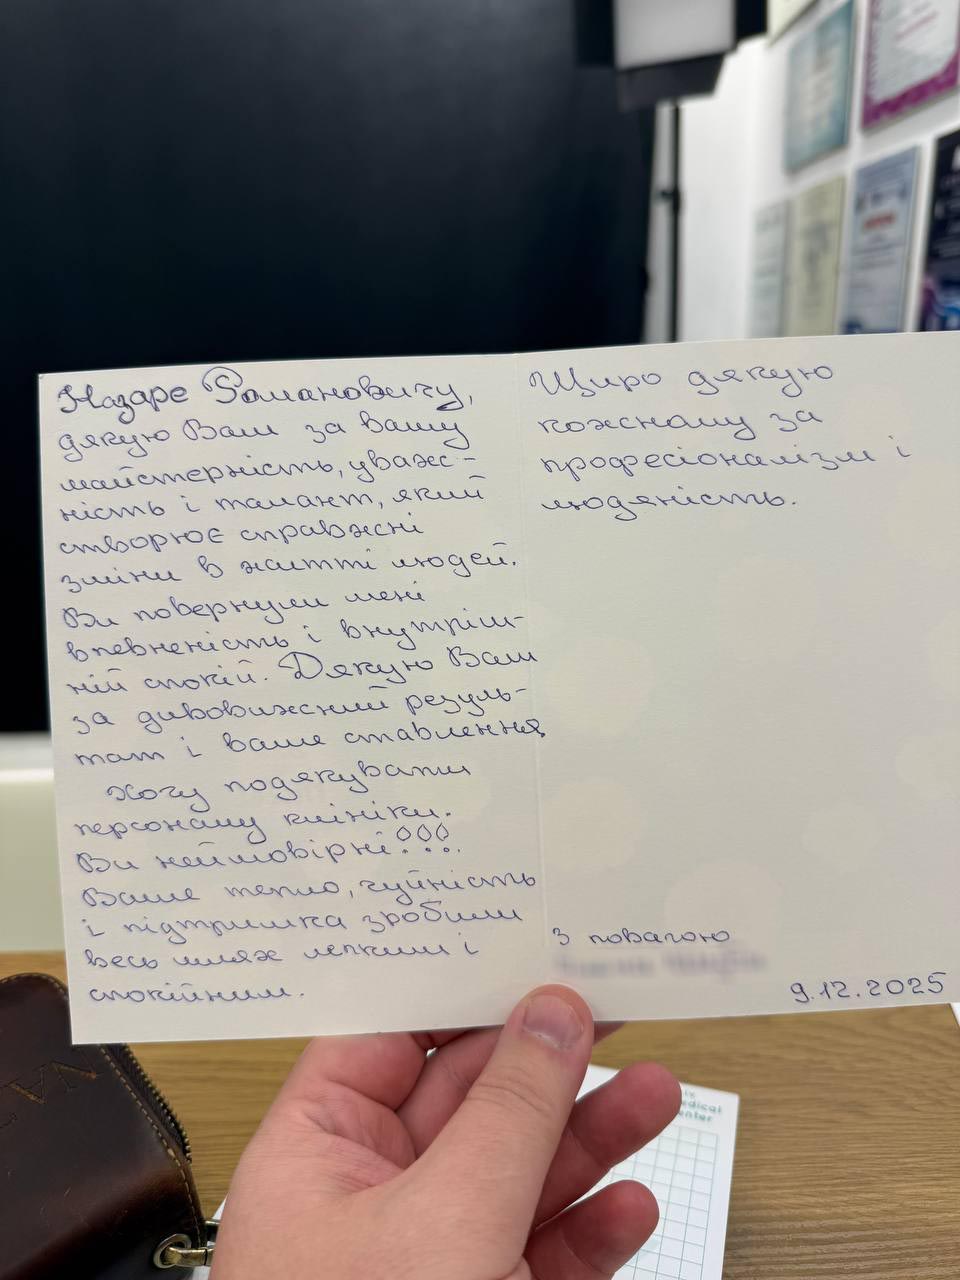 Назаре Романовичу,
дякую Вам за вашу
майстерність, уваж-
ність і талант, який
створює справжні
зміни в житті людей.
Ви повернули мені
впевненість і внутріш-
ній спокій. Дякую Вам
за дивовижний резуль-
тат і ваше ставлення
Хочу подякувати
персоналу клініки.
Ви неймовірні!!!
Ваше тепло, чуйність
і підтримка зробили
весь шлях легким і
спокійним.
Щиро дякую
кожному за
професіоналізм і
людяність.
З повагою
9.12.2025
edical
enter